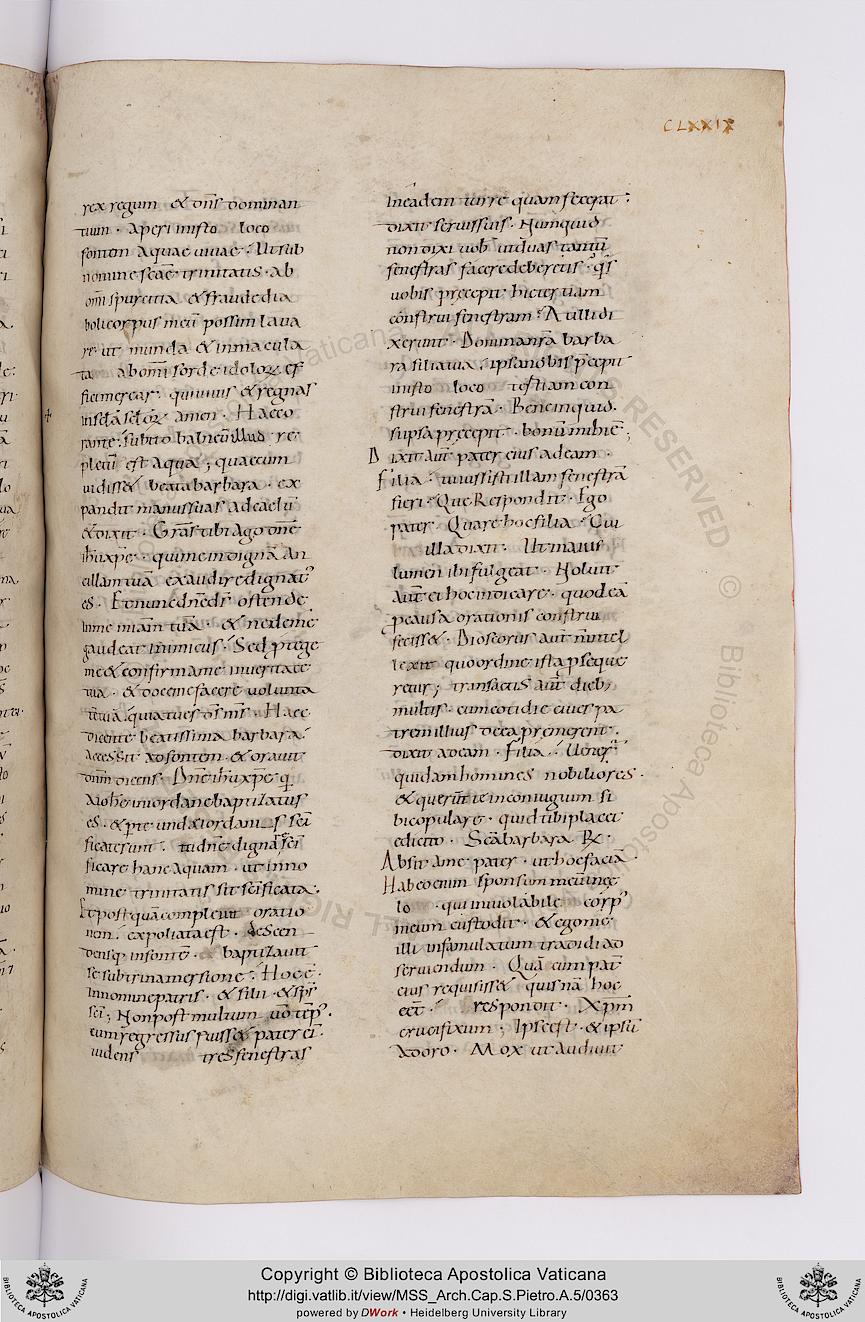 CLXXIX
rex regum & dn̄s dominan
tium · Aperi inisto loco
fontem aquae uiuae · Ut sub
nomine sc̄ae trinitatis · ab
om̄i spurcitia & fraude dia
boli corpus meū possim laua
re · ut munda & inmacula
ta ab om̄i sorde idoloꝝ ef
fici merear · qui uiuis & regnas
in sc̄la sc̄loꝝ amen · Haec o
rante · subito re
pletū est aqua ; quae cum
uidiss& beata barbara · ex
pandit manus suas ad caelū
& dixit · Gras̄ tibi ago dn̄e
ih̄u xp̄e · qui me indignā an
cillam tuā exaudire dignat᾽
es · Et nunc dn̄e ds̄ ostende
in me miā̄m tuā · & ne de me
gaudeat inimicus · Sed ptege
me & confirma me in ueritate
tua · & doce me facere uolunta
tē tuā · quia tu es ds̄ ms̄ · Haec
dicente beatissima barbara ·
accessit ad fontem · & orauit
dn̄m dicens · Dn̄e ih̄u xp̄e q̄
a iohe in iordane baptizatus
es · & p te unda iordanis sc̄i
ficate sunt · tu dn̄e digna sc̄i
ficare hanc aquam · ut in no
mine trinitatis sit sc̄ificata ·
Et postquā compleuit oratio
nem · expoliata est · descen
densq; in fonte · baptizauit
se sub trina mersione · Hoc ē ·
In nomine patris · & filii · & sps̄
sc̄i ; Non post multum uō tēp᾽ ·
cum regressus fuiss& pater ei᾽ ·
uidens tres fenestras
in eadem turre quam fecerat ·
dixit seruis suis · Numquid
non dixi uob̄ ut duas tantū
fenestras facere deberetis · q̄s
uobis precepit hic tertiam
construi fenestram · At illi di
xerunt · Domina nr̄a barba
ra filia tua · ipsa nobis p̄cepit
inisto loco tertiam con
strui fenestrā · Bene inquid ·
si ipsa precepit · bonū mihi ē ;
Dixit aut̄ pater eius ad eam ·
Filia · tu iussisti illam fenestrā
fieri · Quę Respondit · Ego
pater · Quare hoc filia · Cui
illa dixit · Ut maius
lumen ibi fulgeat · Noluit
aut̄ ei hoc indicare · quod eā
p causa orationis construi
feciss& · Dioscorus aut̄ n̄ intel
lexit quo ordine ista pseque
retur ; transactis aut̄ dieb;
multis · cum cotidie eius pa
trem illius
dixit ad eam · Filia · Uener᾽
quidam homines nobiliores ·
& querūt te in coniugium si
bi copulare · quid tibi placet
edicito · Sc̄a barbara ℞ ·
Absit a me pater · ut hoc faciā ·
Habeo enim sponsum meū in cę
lo · qui inuolabile corp᾽
meum custodit · & ego me
illi in famulatum tradidi ad
seruiendum · Quā cum pat̄
eius requisiss& · quis nā hoc
eet̄ · respondit · Xpm̄
crucifixum ; Ipse est · & ipsū
adoro · Mox ut audiuit
Copyright © Biblioteca Apostolica Vaticana
http://digi.vatlib.it/view/MSS_Arch.Cap.S.Pietro.A.5/0363
powered by DWork • Heidelberg University Library